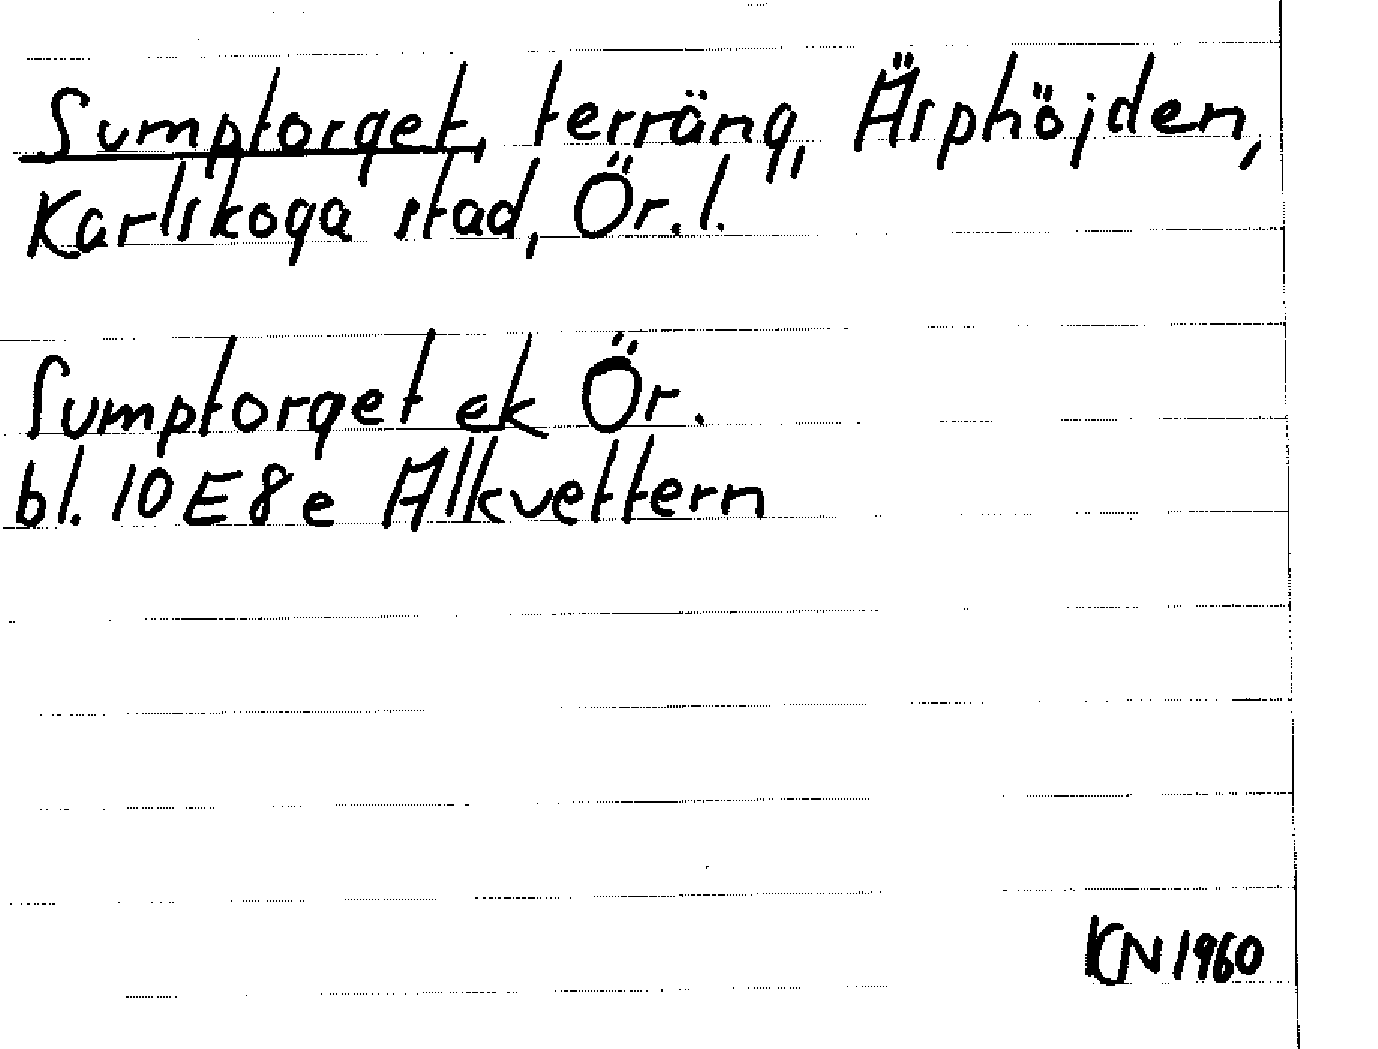 Sumptorget, terräng, Äsphöjden,
Karlskoga stad, Ör. l.
Sumptorget ek Ör.
bl. 10E8e Alkvettern
KN 1960